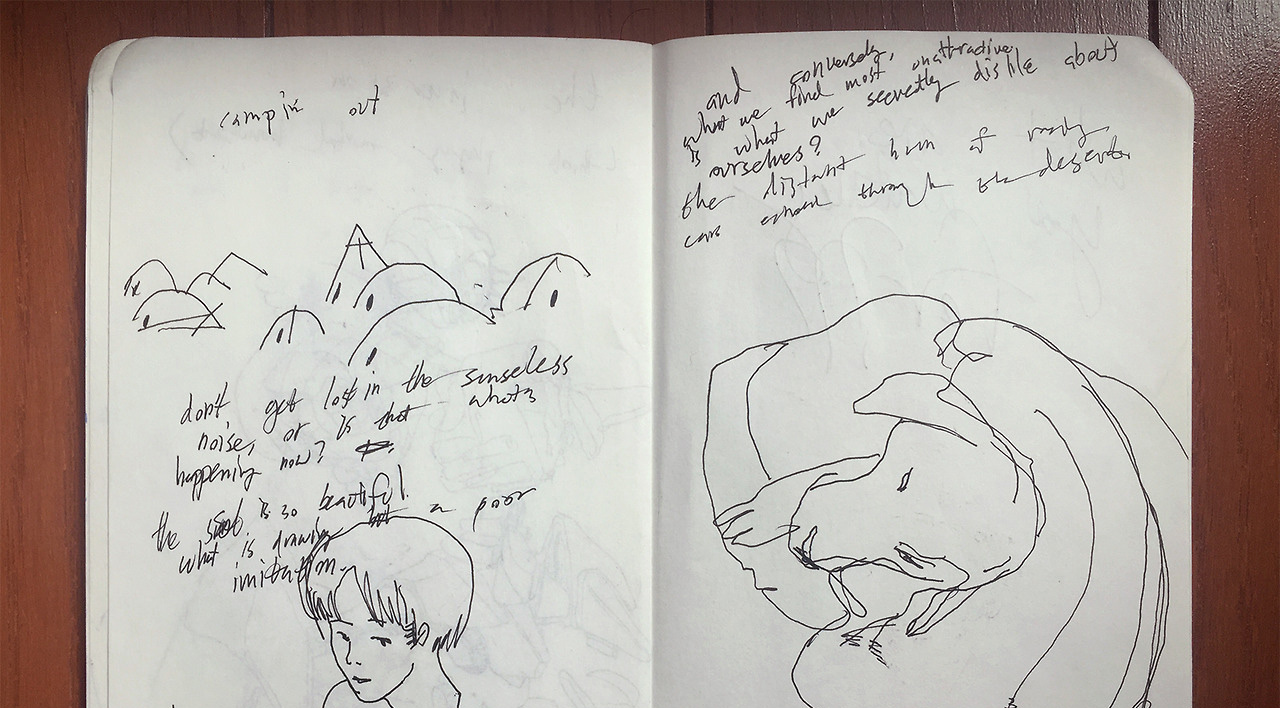 campin out
don't get lost in the senseless
noise, or is that whats
happening now?
the is so beautiful.
what is drawing but a poor
imitation.
and conversely,
what we find most unattractive
is what we secretly dislike about
ourselves?
the distant hum of
cars echoed through the desert.